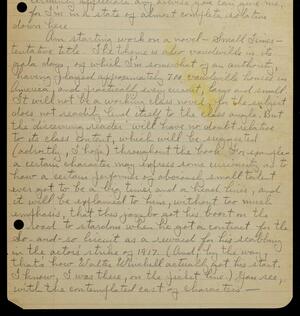 certainly appreciate any advice you can give me,
for I'm in a state of almost complete isolation
down here.
Am starting work on a novel - Small Times -
tentative title. Its theme is also vaudeville in its
gala days, of which I'm somewhat of an authority,
having played approximately 700 vaudeville houses in
America, and practically every circuit, large and small.
It will not be a working class novel, for the subject
does not readily lend itself to the class angle. But
the discerning reader will have no doubt relative
to its class content, which will be suggested
(adroitly, I hope) throughout the book. For example
a certain character may express some curiosity as to
how a certain performer of obviously small talent
ever got to be a big timer and a head liner, and
it will be explained to him, without too much
emphasis, that this party got his boost on the
road to stardom when he got a contract for the
So-and-So circuit as a reward for his scabbing
in the actors strike of 1917. (And, by the way,
that's how Walter Winchell actually got his start.
I know, I was there, on the picket line.) You see,
with the contemplated cast of characters -